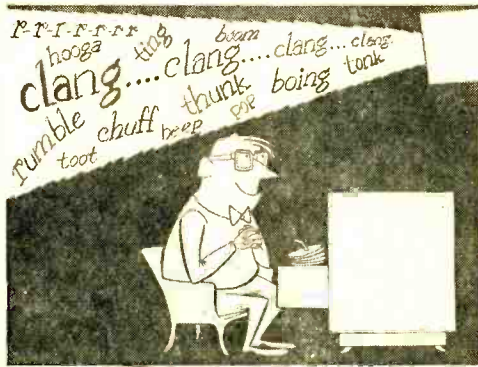 r-r-r-r-r-r-r
hooga ting boom
clang.... clang.... clang... clang.
rumble chuff beep thunk pop boing tonk
toot